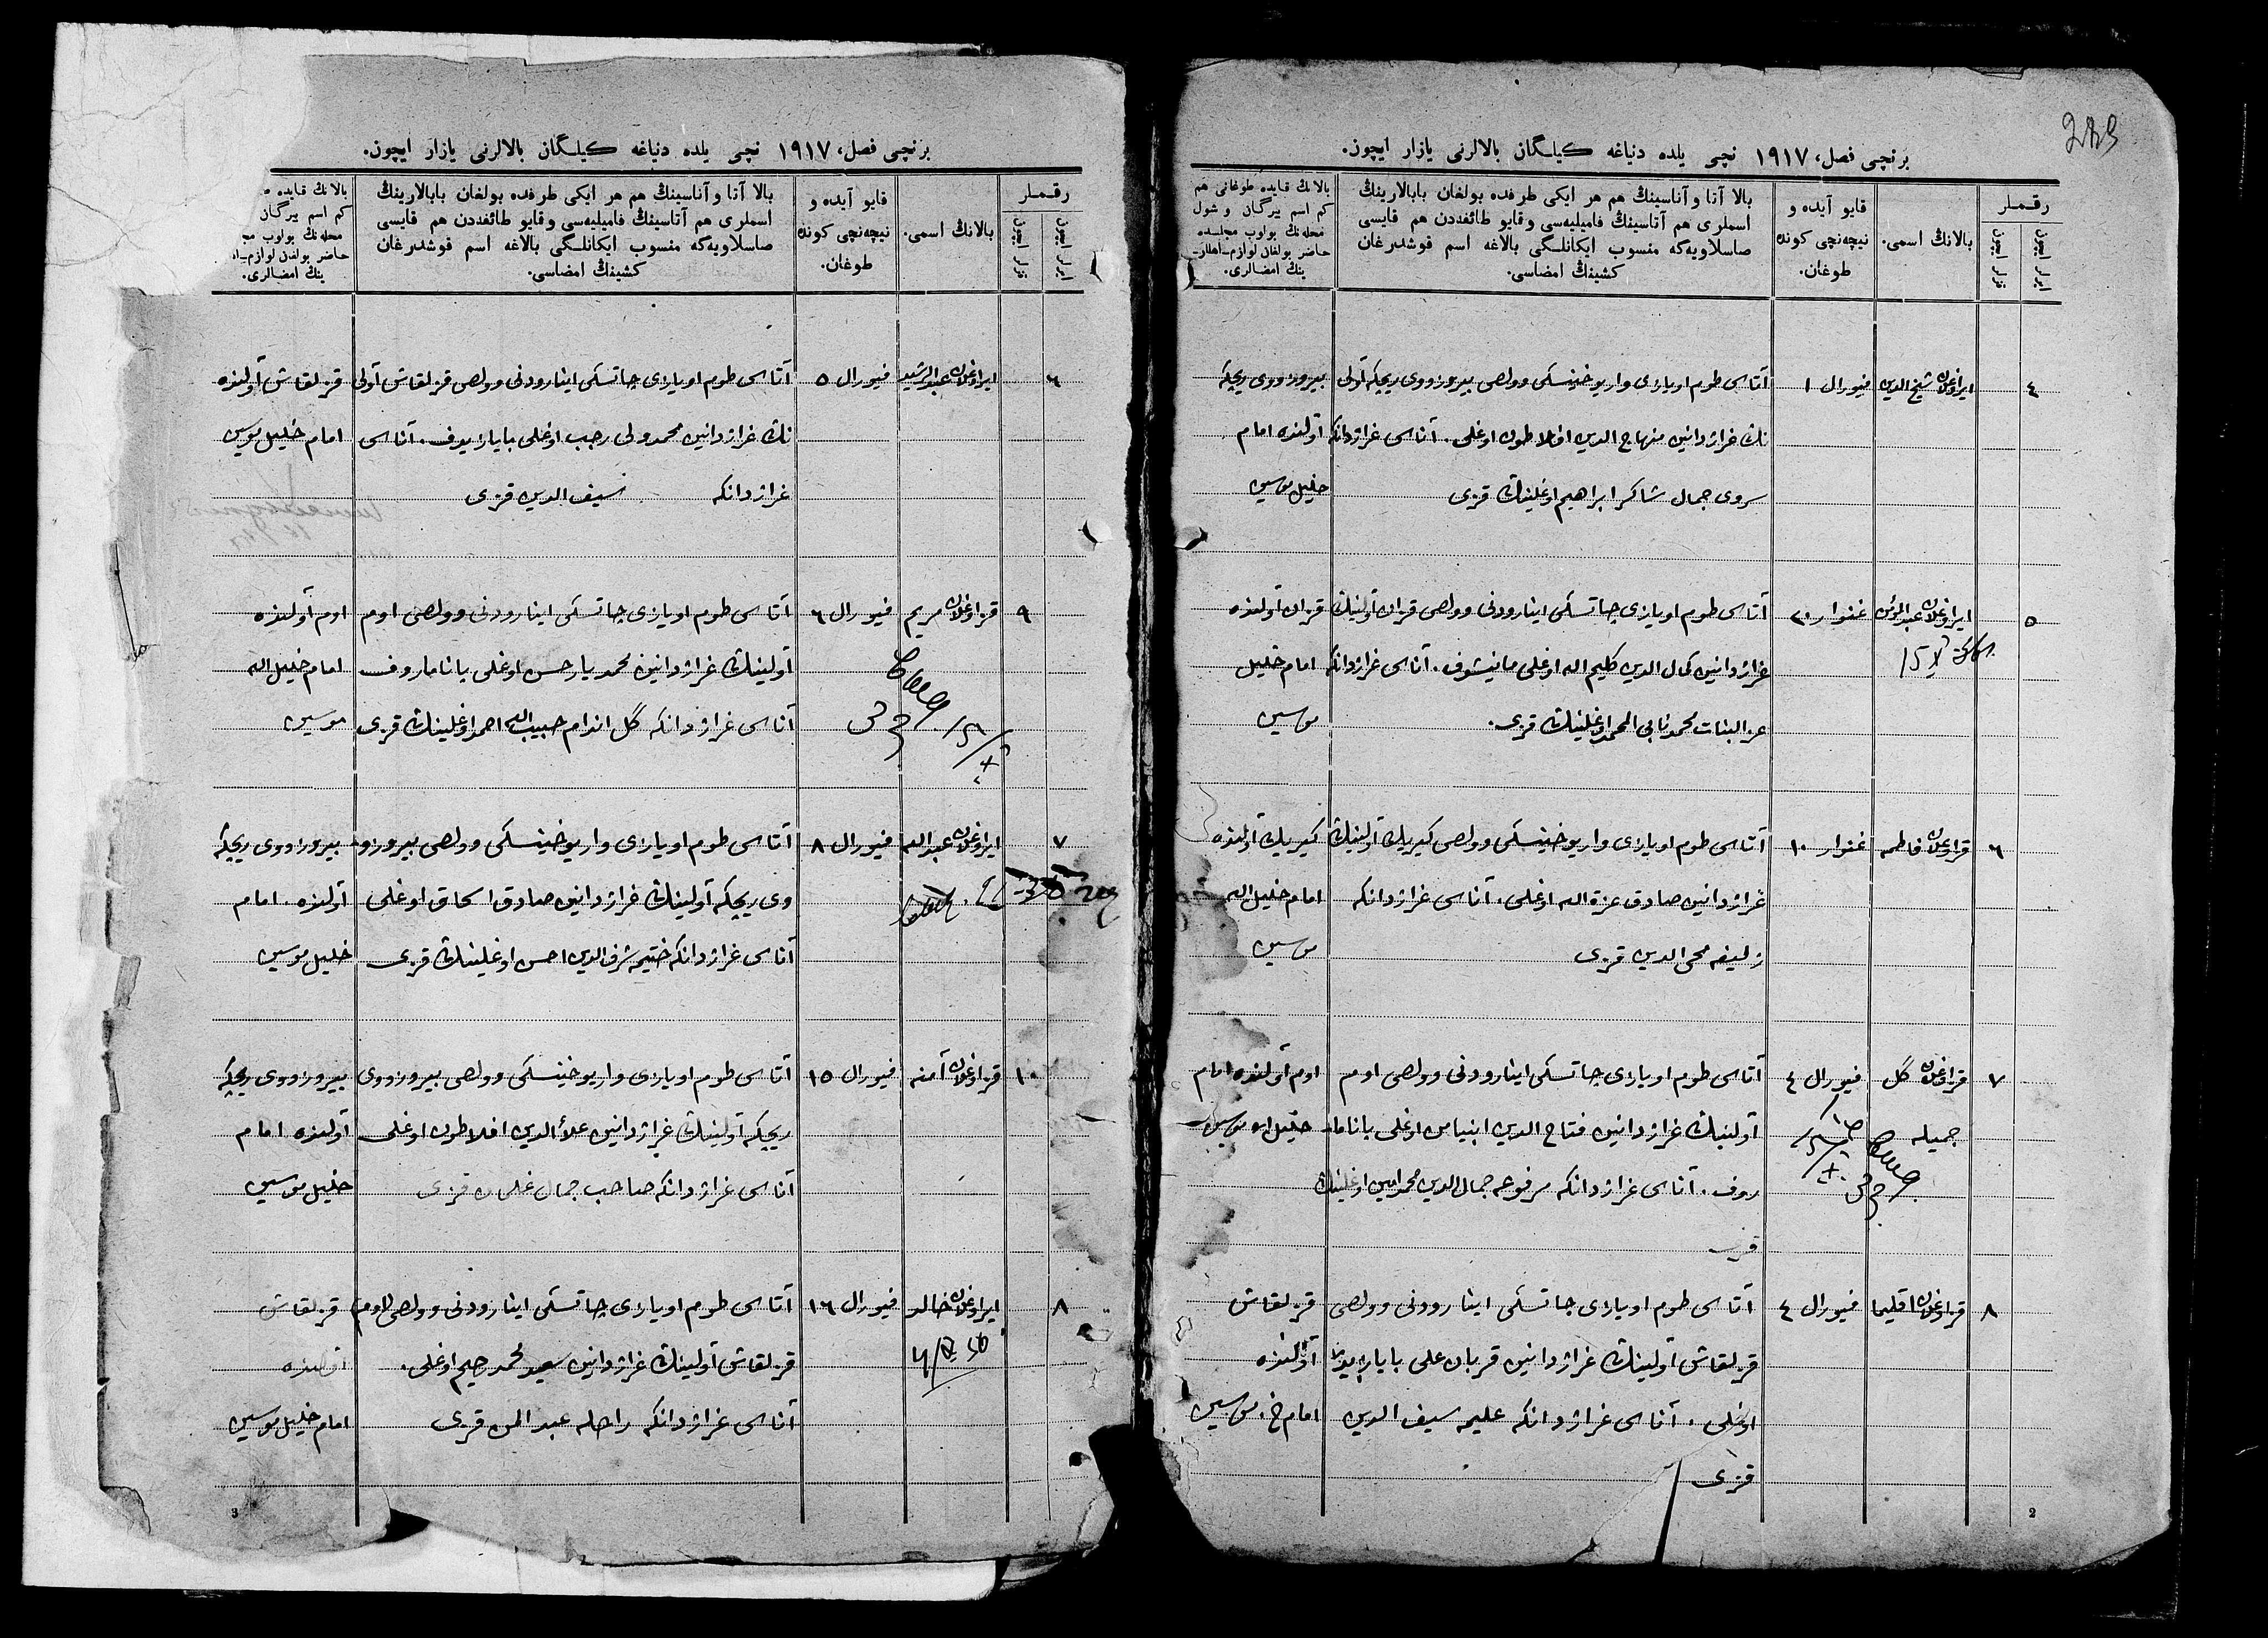 برنچی فصل، ١٩١٧ نچی یلده دنیاغه كیلگان بالالرنی یازار ایچون.
رقملر
ایرلر ایچون
قزلر ایچون
بالانڭ اسمی.
قایو آیده و
نیچه‌نچی كونده
طوغان.
بالا آتا و آناسینڭ هم هر ایكی طرفده بولغان بابالارینڭ
اسملری هم آتاسینڭ فامیلیه‌سی و قایو طائفه‌دن هم قایسی
صاسلاویه‌گه منسوب ایكانلگی بالاغه اسم قوشدرغان
كشینڭ امضاسی.
بالانڭ قایده طوغانی هم
كم اسم بیرگان و شول
محله‌نڭ بولوب مجلسده
حاضر بولغان لوازم اهللر-
ینڭ امضالری.
٤
ایر اوغلان شیخ الدین
فیورال ١
آتاسی طوم اویازی واریوخینسكی وولصی بیروزووی ریچكه آولی
نڭ غراژدانین منهاج الدین افلاطون اوغلی. آناسی غراژدانكه
سروی جمال شاكر ابراهیم اوغلینڭ قزی
بیروزووی ریچكه
آولنده امام
خلیل موسین
٥
ایر اوغلان عبدالمؤمن
غنوار ٢٠
آتاسی طوم اویازی چاتسكی اینارودنی وولصی قزان آولینڭ
غراژدانین كمال الدین كلیم الله اوغلی مانیشوف. آناسی غراژدانكه
عزالبنات محمدنابی المحمد اوغلینڭ قزی.
قزان آولنده
امام خلیل
موسین
٦
قز اوغلان فاطمه
غنوار ١٠
آتاسی طوم اویازی واریوخینسكی وولصی كیریك آولینڭ
غراژدانین صادق عزة الله اوغلی. آناسی غراژدانكه
زلیفه محی الدین قزی
كیریك آولنده
امام خلیل الله
موسین
٧
قز اوغلان گل
جمیله
فیورال ٤
آتاسی طوم اویازی چاتسكی اینارودنی وولصی اوم
آولینڭ غراژدانین فتاح الدین ابنیامن اوغلی یاناما
روف. آناسی غراژدانكه مرفوعه جمال الدین محمد امین اوغلینڭ
قزی
اوم آولنده امام
خلیل الله موسین
٨
قز اوغلان اقلیما
فیورال ٤
آتاسی طوم اویازی چاتسكی اینارودنی وولصی
قزلقاش آولینڭ غراژدانین قربان علی بابایاریوف
اوغلی. آناسی غراژدانكه علیمه سیف الدین
قزی
قزلقاش
آولنده
امام خ. موسین
2
برنچی فصل، ١٩١٧ نچی یلده دنیاغه كیلگان بالالرنی یازار ایچون.
رقملر
ایرلر ایچون
قزلر ایچون
بالانڭ اسمی.
قایو آیده و
نیچه‌نچی كونده
طوغان.
بالا آتا و آناسینڭ هم هر ایكی طرفده بولغان بابالارینڭ
اسملری هم آتاسینڭ فامیلیه‌سی و قایو طائفه‌دن هم قایسی
صاسلاویه‌گه منسوب ایكانلگی بالاغه اسم قوشدرغان
كشینڭ امضاسی.
بالانڭ قایده
كم اسم بیرگان
محله‌نڭ بولوب
حاضر بولغان لوازم
ینڭ امضالری.
٦
ایر اوغلان عبدالرشید
فیورال ٥
آتاسی طوم اویازی چاتسكی اینارودنی وولصی قزلقاش آولی
نڭ غراژدانین محمدولی رجب اوغلی بابایاریوف. آناسی
غراژدانكه سیف الدین قزی
قزلقاش آولنده
امام خلیل موسین
٩
قز اوغلان مریم
فیورال ٦
آتاسی طوم اویازی چاتسكی اینارودنی وولصی اوم
آولینڭ غراژدانین محمدیار حسن اوغلی یاناماروف
آناسی غراژدانكه گل اندام حبیب الله احمد اوغلینڭ قزی
اوم آولنده
امام خلیل الله
موسین
٧
ایر اوغلان عبدالله
فیورال ٨
آتاسی طوم اویازی واریوخینسكی وولصی بیروزو-
وی ریچكه آولینڭ غراژدانین صادق اسحاق اوغلی
آناسی غراژدانكه ختیمه شرف الدین احسن اوغلینڭ قزی
بیروزووی ریچكه
آولنده. امام
خلیل موسین
١٠
قز اوغلان آمنه
فیورال ١٥
آتاسی طوم اویازی واریوخینسكی وولصی بیروزووی
ریچكه آولینڭ غراژدانین علاءالدین افلاطون اوغلی
آناسی غراژدانكه صاحب جمال قزی
بیروزووی ریچكه
آولنده امام
خلیل موسین
٨
ایر اوغلان خالد
فیورال ١٦
آتاسی طوم اویازی چاتسكی اینارودنی وولصی (اوم)
قزلقاش آولینڭ غراژدانین سعید محمدرحیم اوغلی.
آناسی غراژدانكه راحله عبد المن قزی
قزلقاش
آولنده
امام خلیل موسین
3